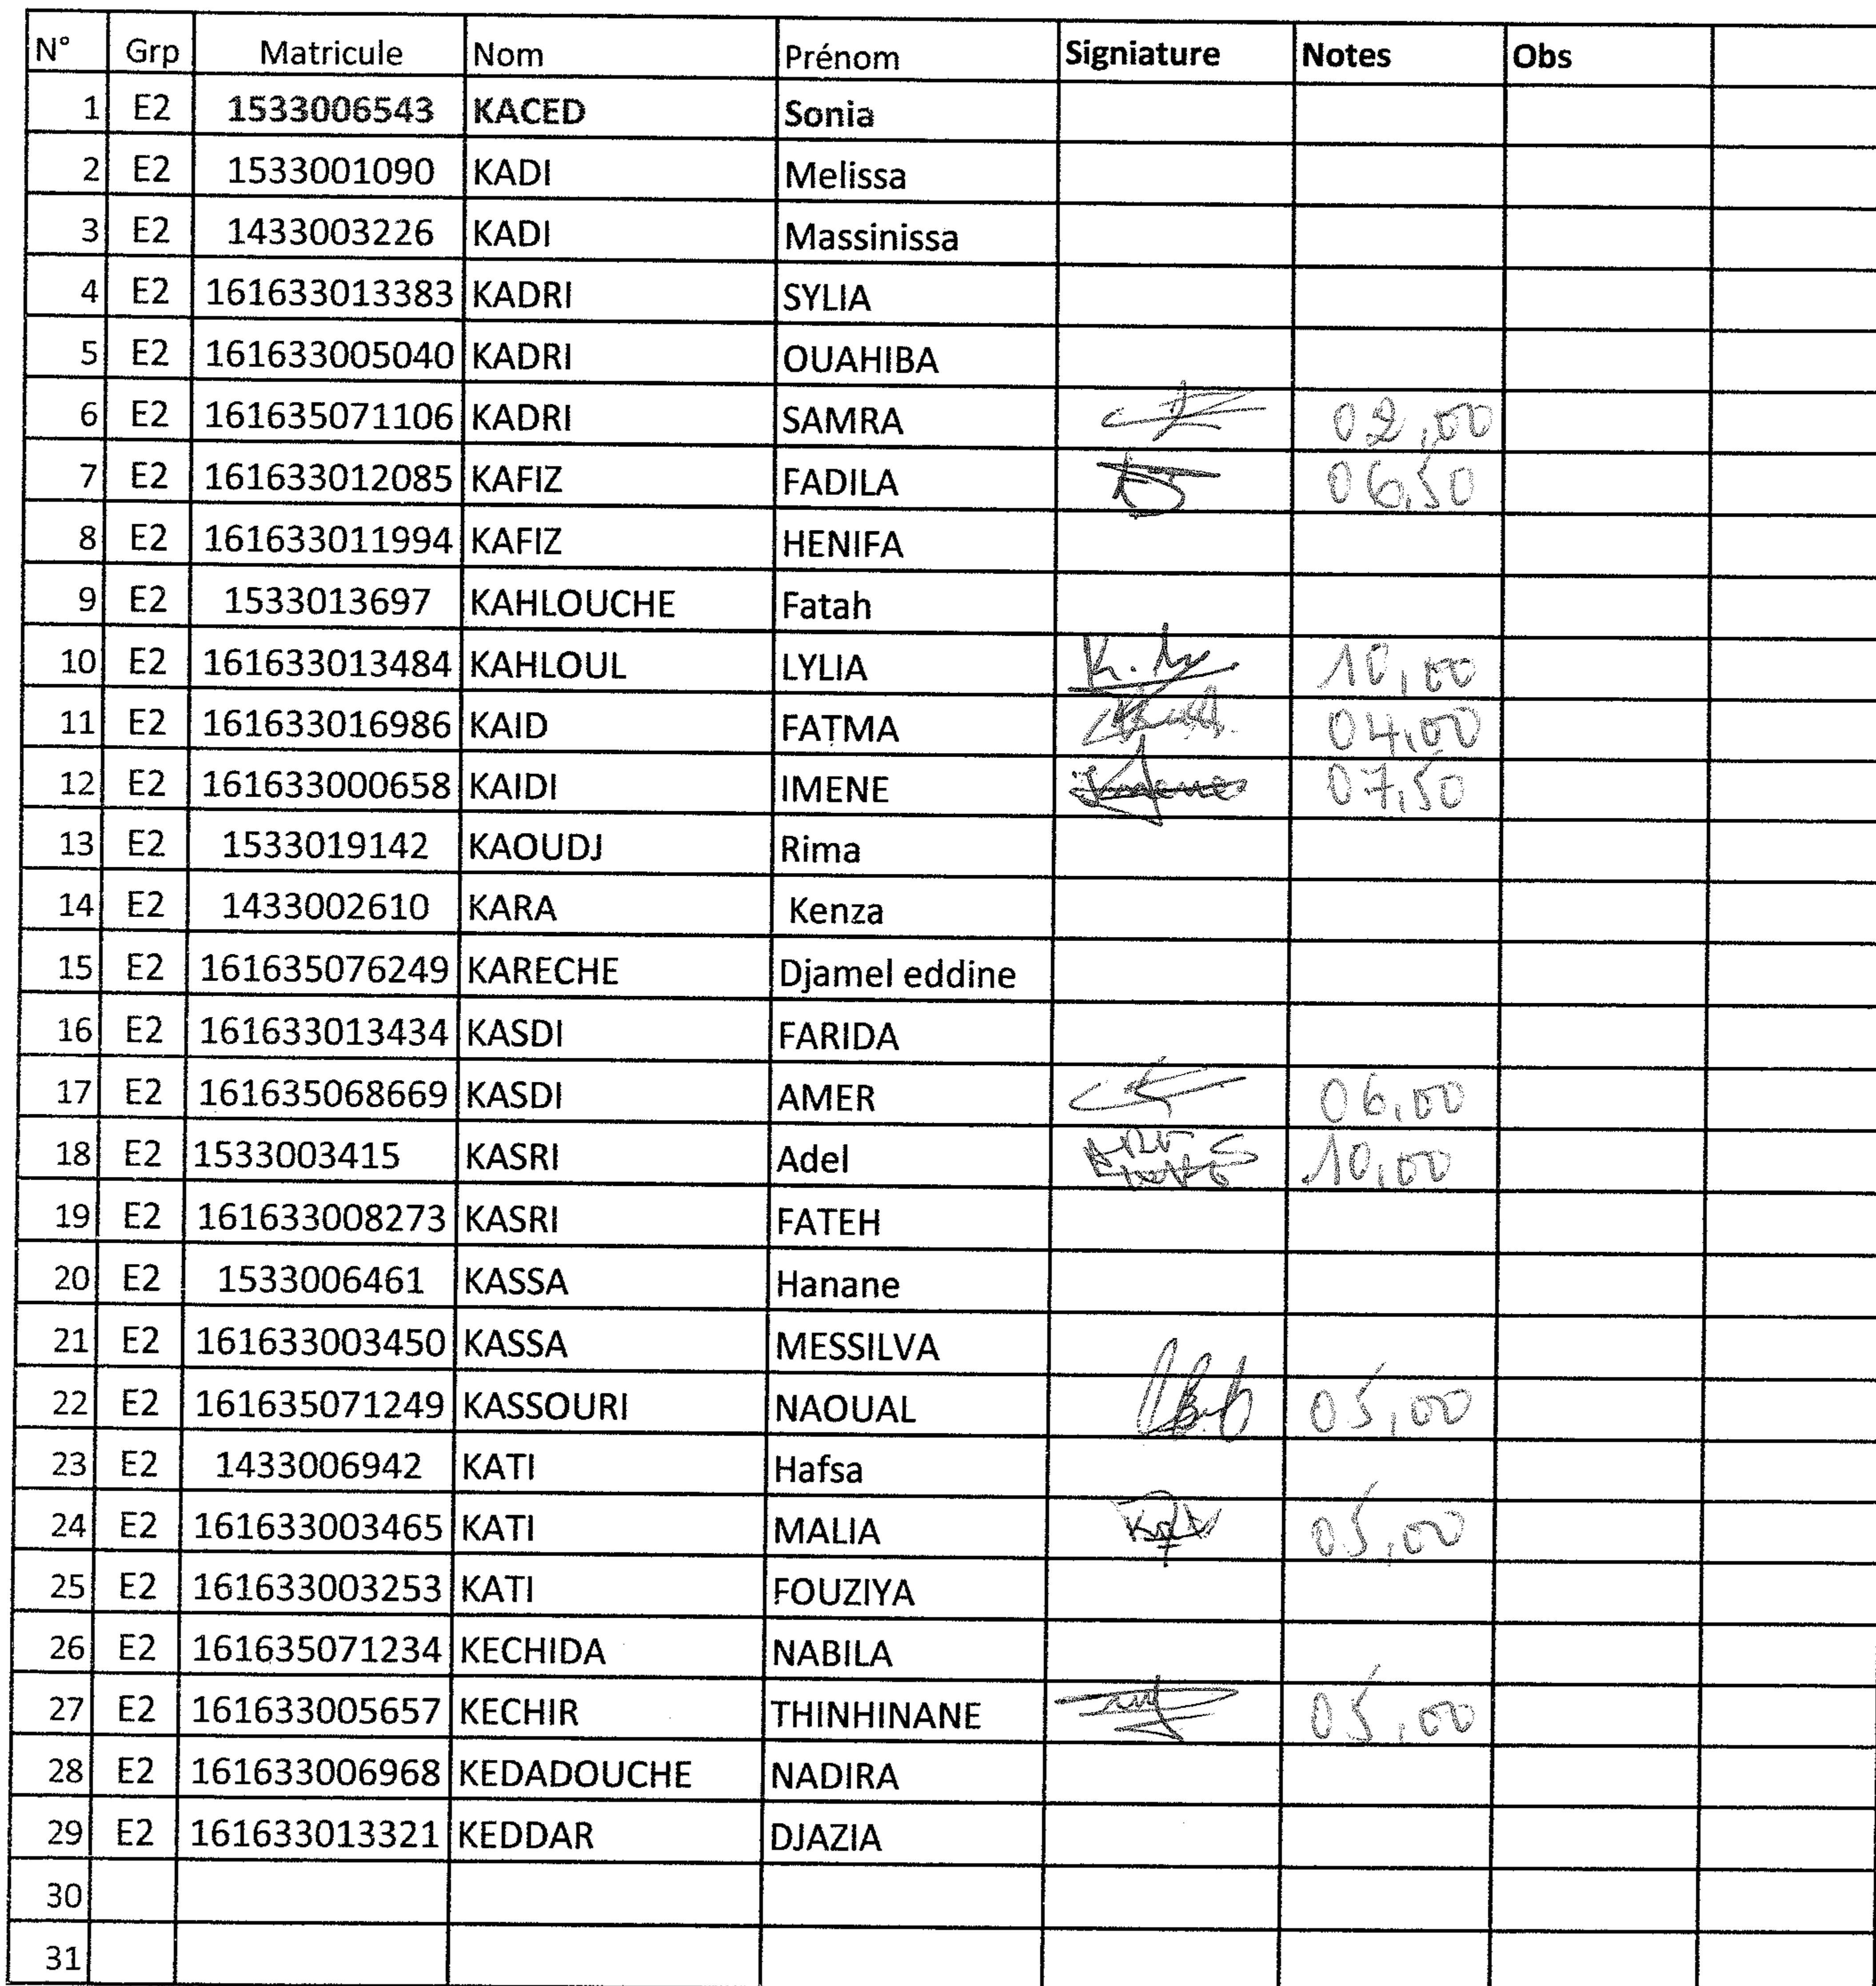 N° Grp Matricule Nom Prénom Signiature Notes Obs
1 E2 1533006543 KACED Sonia
2 E2 1533001090 KADI Melissa
3 E2 1433003226 KADI Massinissa
4 E2 161633013383 KADRI SYLIA
5 E2 161633005040 KADRI OUAHIBA
6 E2 161635071106 KADRI SAMRA 02,00
7 E2 161633012085 KAFIZ FADILA 06,50
8 E2 161633011994 KAFIZ HENIFA
9 E2 1533013697 KAHLOUCHE Fatah
10 E2 161633013484 KAHLOUL LYLIA 10,00
11 E2 161633016986 KAID FATMA 04,00
12 E2 161633000658 KAIDI IMENE 07,50
13 E2 1533019142 KAOUDJ Rima
14 E2 1433002610 KARA Kenza
15 E2 161635076249 KARECHE Djamel eddine
16 E2 161633013434 KASDI FARIDA
17 E2 161635068669 KASDI AMER 06,00
18 E2 1533003415 KASRI Adel 10,00
19 E2 161633008273 KASRI FATEH
20 E2 1533006461 KASSA Hanane
21 E2 161633003450 KASSA MESSILVA
22 E2 161635071249 KASSOURI NAOUAL 05,00
23 E2 1433006942 KATI Hafsa
24 E2 161633003465 KATI MALIA 05,00
25 E2 161633003253 KATI FOUZIYA
26 E2 161635071234 KECHIDA NABILA
27 E2 161633005657 KECHIR THINHINANE 05,00
28 E2 161633006968 KEDADOUCHE NADIRA
29 E2 161633013321 KEDDAR DJAZIA
30
31